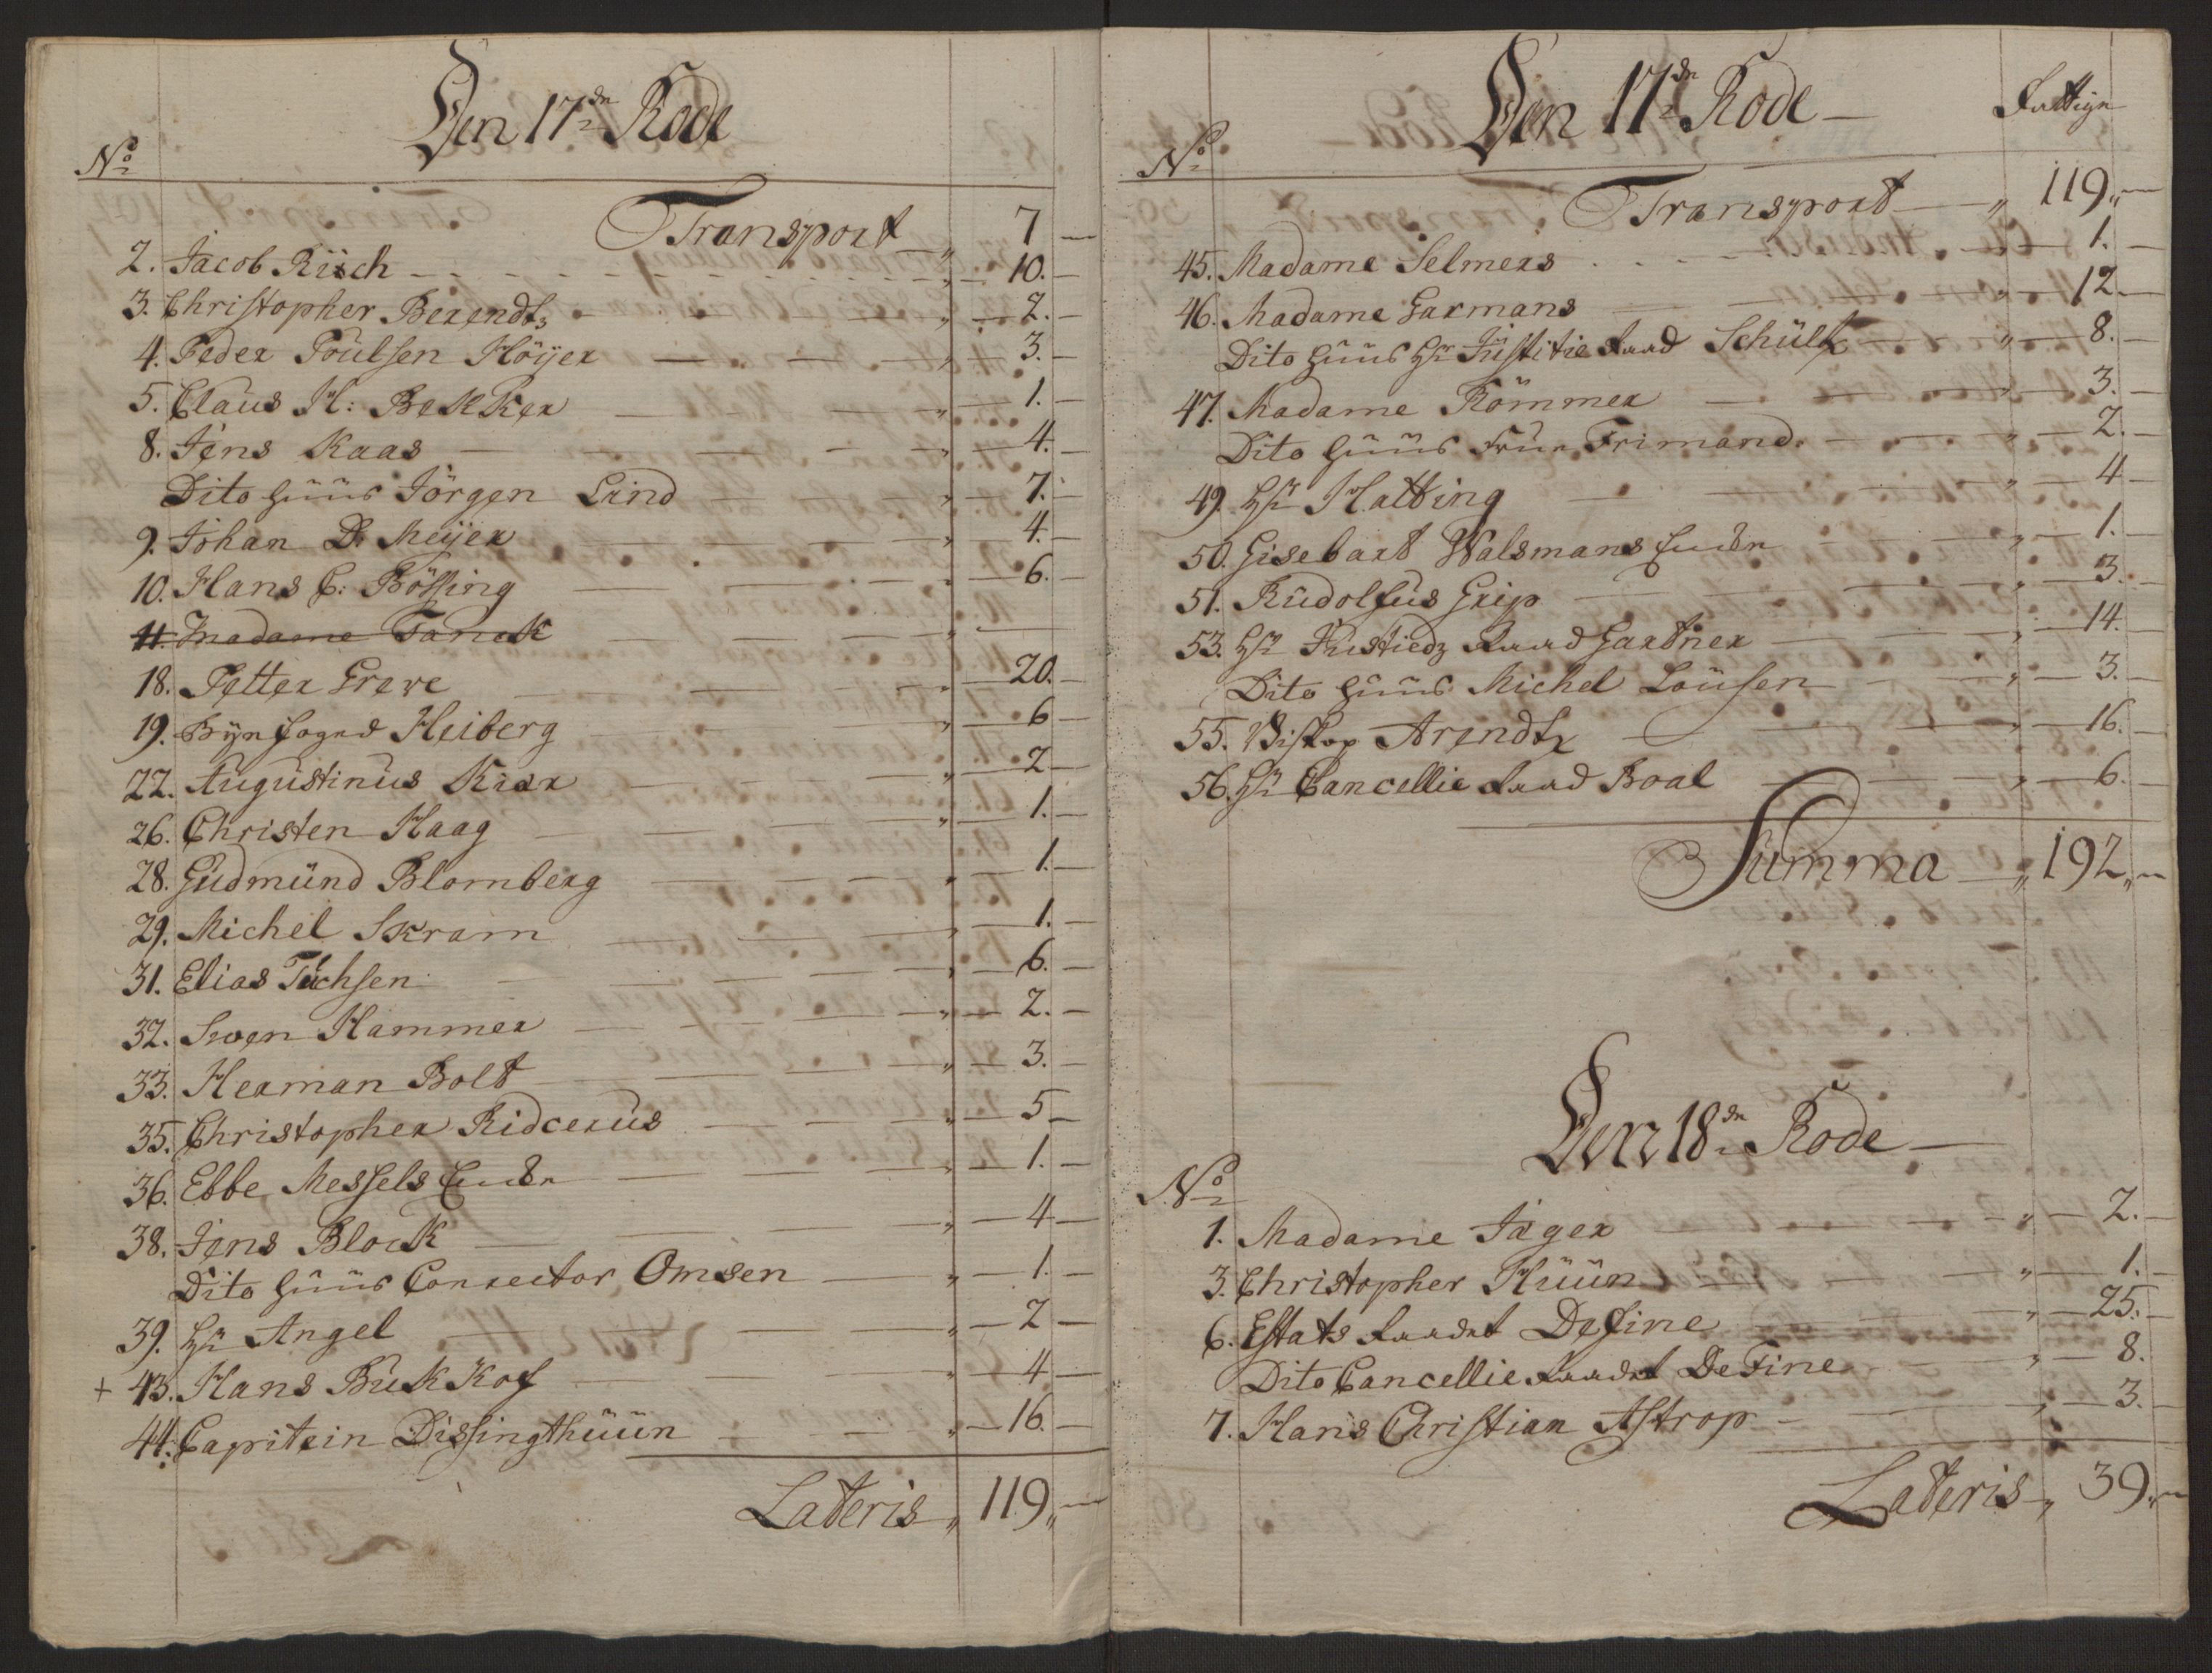 Den 17de Rode
No
Transport „ 7 —
2. Jacob Risch „ 10. —
3. Christopher Berendts „ 2. —
4. Peder Poulsen Höijer „ 3. —
5. Claus H: Bekker „ 1. —
8. Jens Kaas „ 4. —
Dito Huus Jörgen Lind „ 7. —
9. Johan D. Meijer „ 4. —
10. Hans C: Bössing „ 6. —
11. Madame Tanck „ —
18. Petter Greve „ 20. —
19. Byefoged Heiberg „ 6 —
22. Augustinus Krar „ 2 —
26. Christen Haag „ 1. —
28. Gudmund Blomberg „ 1. —
29. Michel Skram „ 1. —
31. Elias Tuchsen „ 6. —
32. Swen Hammer „ 2. —
33. Herman Bolt „ 3. —
35. Christopher Ridcerus „ 5 —
36. Ebbe Messels Encke „ 1. —
38. Jens Block „ 4 —
Dito Huus Conrector Omsen „ 1. —
39. Hr Angel „ 2 —
+ 43. Hans Bukkof „ 4 —
44. Capitein Dissingthuun „ 16. —
Lateris „ 119 „ —
Den 17de Rode —
Fattige
No
Transport „ 119 „ —
45. Madame Selmers 1. —
46. Madame Garmans „ 12 —
Dito Huus Hr Justitie Raad Schultz „ 8. —
47. Madame Römmer „ 3. —
Dito Huus Frue Frimand „ 2. —
49. Hr Halting „ 4 —
50. Gisebart Walsmans Encke „ 1. —
51. Rudolfus Grip „ 3. —
53. Hr Justiedz Raad Gartner „ 14. —
Dito Huus Michel Lousen „ 3. —
55. Biskop Arendtz „ 16. —
56. Hr Cancellie Raad Boal „ 6. —
Summa „ 192 „ —
Den 18de Rode —
No
1. Madame Jager „ 2. —
3. Christopher Huun „ 1. —
6. Estats Raadet Define „ 25. —
Dito Cancellie Raadet De Fine „ 8.
7. Hans Christian Astrop „ 3. —
Lateris „ 39. „ —